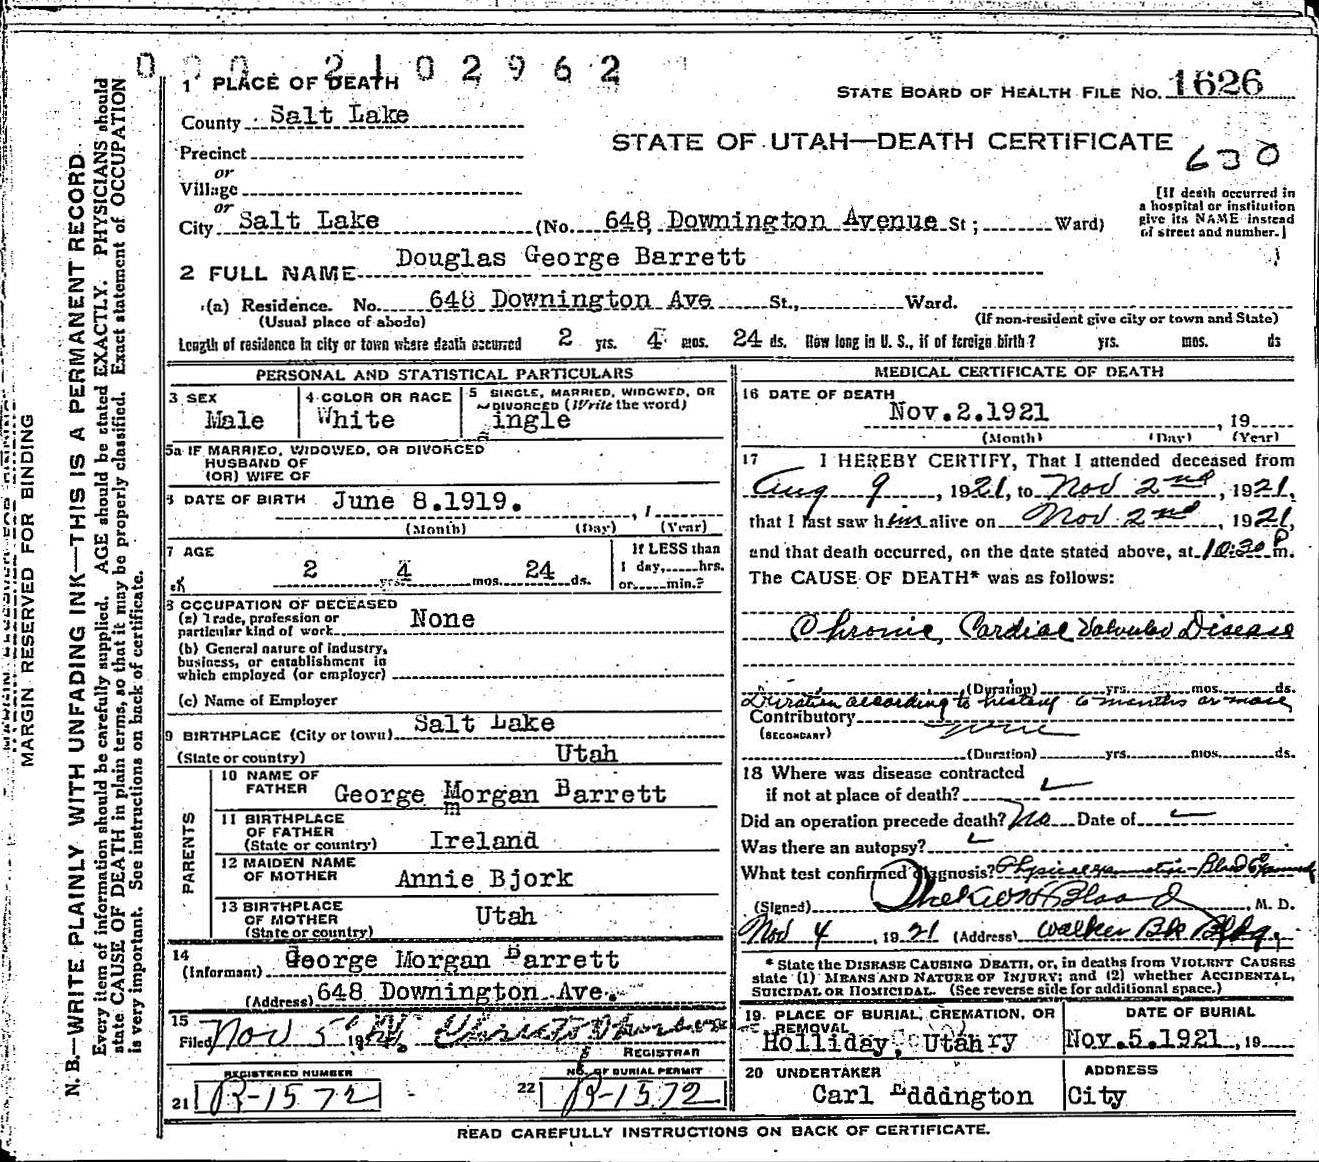 0 0 0 2 1 0 2 9 6 2
1 PLACE OF DEATH
STATE BOARD OF HEALTH FILE NO. 1626
County Salt Lake
STATE OF UTAH—DEATH CERTIFICATE
630
Precinct
or
Village
or
City Salt Lake (No. 648 Downington Avenue St; Ward)
[If death occurred in
a hospital or institution
give its NAME instead
of street and number.]
2 FULL NAME Douglas George Barrett
(a) Residence. No. 648 Downington Ave St., Ward.
(Usual place of abode) (If non-resident give city or town and State)
Length of residence in city or town where death occurred 2 yrs. 4 mos. 24 ds. How long in U. S., if of foreign birth? yrs. mos. ds
PERSONAL AND STATISTICAL PARTICULARS
3 SEX
Male
4 COLOR OR RACE
White
5 SINGLE, MARRIED, WIDOWED, OR
DIVORCED (Write the word)
Single
5a IF MARRIED, WIDOWED, OR DIVORCED
HUSBAND OF
(OR) WIFE OF
6 DATE OF BIRTH June 8.1919.
(Month) (Day) (Year)
7 AGE
2 yrs. 4 mos. 24 ds.
If LESS than
1 day,.....hrs.
or.....min.?
8 OCCUPATION OF DECEASED
(a) Trade, profession or
particular kind of work None
(b) General nature of industry,
business, or establishment in
which employed (or employer)
(c) Name of Employer
9 BIRTHPLACE (City or town) Salt Lake
(State or country) Utah
PARENTS
10 NAME OF
FATHER George Morgan Barrett
11 BIRTHPLACE
OF FATHER
(State or country) Ireland
12 MAIDEN NAME
OF MOTHER Annie Bjork
13 BIRTHPLACE
OF MOTHER
(State or country) Utah
14
(Informant) George Morgan Barrett
(Address) 648 Downington Ave.
15
Filed Nov 5
REGISTRAR
REGISTERED NUMBER
21 R-1572
NO. OF BURIAL PERMIT
22 R-1572
MEDICAL CERTIFICATE OF DEATH
16 DATE OF DEATH
Nov.2.1921 , 19
(Month) (Day) (Year)
17 I HEREBY CERTIFY, That I attended deceased from
Aug 9, 1921, to Nov 2nd, 1921,
that I last saw him alive on Nov 2nd, 1921,
and that death occurred, on the date stated above, at 10:30 P m.
The CAUSE OF DEATH* was as follows:
Chronic Cardiac Valvular Disease
(Duration) yrs. mos. ds.
Duration according to history 6 months or more
Contributory none
(SECONDARY)
(Duration) yrs. mos. ds.
18 Where was disease contracted
if not at place of death?
Did an operation precede death? No Date of
Was there an autopsy?
What test confirmed diagnosis? Physical examination-Blood
(Signed) M. D.
Nov 4, 1921 (Address) Walker Bk Bldg.
* State the DISEASE CAUSING DEATH, or, in deaths from VIOLENT CAUSES
state (1) MEANS AND NATURE OF INJURY; and (2) whether ACCIDENTAL,
SUICIDAL OR HOMICIDAL. (See reverse side for additional space.)
19. PLACE OF BURIAL, CREMATION, OR
REMOVAL
Holliday, Utah
DATE OF BURIAL
Nov.5.1921 , 19
20 UNDERTAKER
Carl Eddington
ADDRESS
City
READ CAREFULLY INSTRUCTIONS ON BACK OF CERTIFICATE.
MARGIN RESERVED FOR BINDING
N. B.—WRITE PLAINLY WITH UNFADING INK—THIS IS A PERMANENT RECORD.
Every item of information should be carefully supplied. AGE should be stated EXACTLY. PHYSICIANS should
state CAUSE OF DEATH in plain terms, so that it may be properly classified. Exact statement of OCCUPATION
is very important. See instructions on back of certificate.